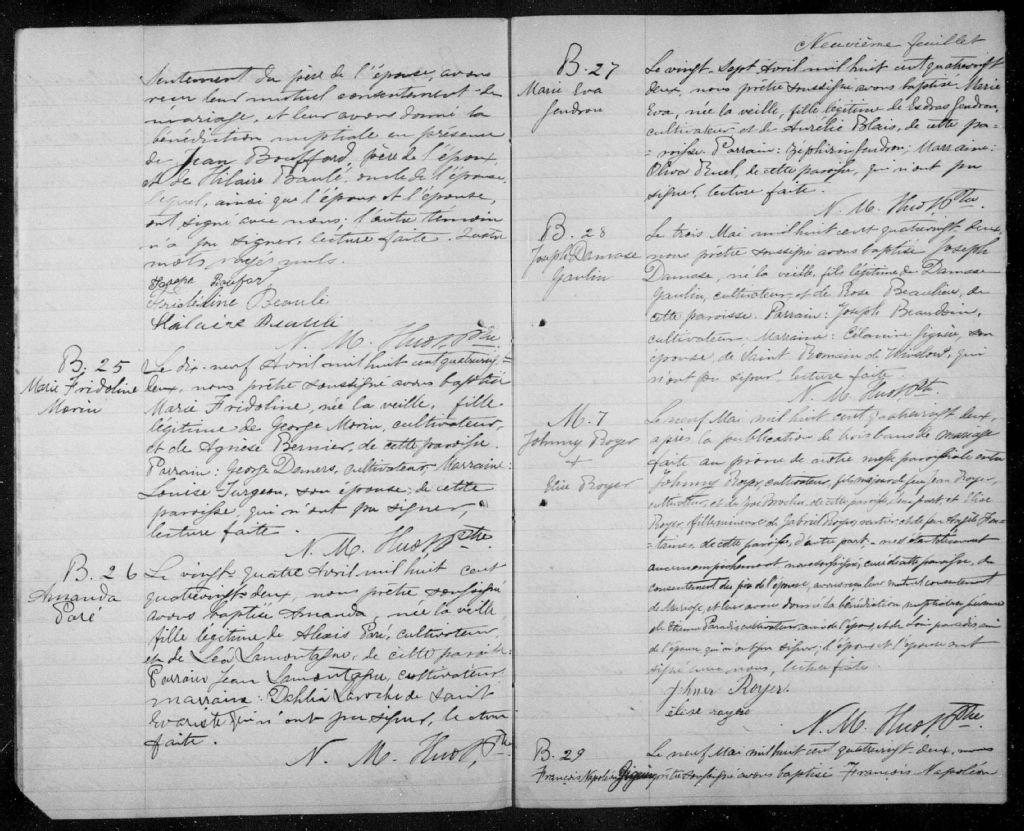 sentement du père de l'épouse, avons
reçu leur mutuel consentement de
mariage, et leur avons donné la
bénédiction nuptiale en présence
de Jean Bouffard, père de l'époux,
et de Hilaire Beaulé, oncle de l'épouse,
lequel, ainsi que l'époux et l'épouse,
ont signé avec nous; l'autre témoin
n'a pu signer, lecture faite. Quatre
mots rayés nuls.
Beaulé
Hilaire Beaulé
N. M. Huot, Ptre
B. 25
Marie Fridoline
Morin
Le dix-neuf Avril mil huit cent quatrevingt-
deux, nous prêtre soussigné avons baptisé
Marie Fridoline, née la veille, fille
légitime de George Morin, cultivateur,
et de Agnèse Bernier, de cette paroisse.
Parrain: George Damers, cultivateur, Marraine:
Louise Turgeon, son épouse, de cette
paroisse qui n'ont pu signer
lecture faite.
N. M. Huot, Ptre
B. 26
Amanda
Paré
Le vingt-quatre Avril mil huit cent
quatrevingt-deux, nous prêtre soussigné
avons baptisé Amanda, née la veille
fille légitime de Alexis Paré, cultivateur,
et de Léa Lamontagne, de cette paroisse
Parrain Jean Lamontagne, cultivateur,
marraine: Dehlia Laroche de Saint
Evariste qui n'ont pu signer, lecture
faite.
N. M. Huot, Ptre
Neuvième feuillet
B. 27
Marie Eva
Gendron
Le vingt-sept Avril mil huit cent quatrevingt
deux, nous prêtre soussigné avons baptisé Marie
Eva, née la veille, fille légitime de Esdras Gendron,
cultivateur et de Aurélie Blais, de cette pa-
roisse. Parrain: Zéphirin Gendron; Marraine:
Oliva Ruel, de cette paroisse, qui n'ont pu
signer, lecture faite.
N. M. Huot, Ptre
B. 28
Joseph Damase
Gaulin
Le trois Mai mil huit cent quatrevingt-deux,
nous prêtre soussigné avons baptisé Joseph
Damase, né la veille, fils légitime de Damase
Gaulin, cultivateur, et de Rose Beaulieu, de
cette paroisse. Parrain: Joseph Beaudoin,
cultivateur. Marraine: Célanire Giguère, son
épouse, de Saint Romain de Winslow, qui
n'ont pu signer, lecture faite.
N. M. Huot, Ptre
M. 7
Johnny Royer
+
Elise Royer
Le neuf Mai mil huit cent quatrevingt deux,
après la publication de trois bans de mariage
faite au prône de notre messe paroissiale entre
Johnny Royer, cultivateur, fils majeur de feu Jean Royer,
cultivateur, et de de cette paroisse, d'une part, et Elise
Royer, fille mineure de Gabriel Royer et de feu Angèle Fon-
taines, de cette paroisse, d'autre part, ne s'étant découvert
aucun empêchement nous soussigné, curé de cette paroisse, du
consentement du père de l'épouse, avons reçu leur mutuel consentement
de Mariage, et leur avons donné la bénédiction nuptiale en présence
de Etienne Paradis cultivateur ami de l'époux, et de Paradis, ami
de l'épouse qui n'ont pu signer; l'époux et l'épouse ont
signé avec nous, lecture faite.
Johner Royer.
élise royer
N. M. Huot, Ptre
B. 29
François Napoléon Giguère
Le neuf Mai mil huit cent quatrevingt deux, nous
prêtre soussigné avons baptisé François Napoléon